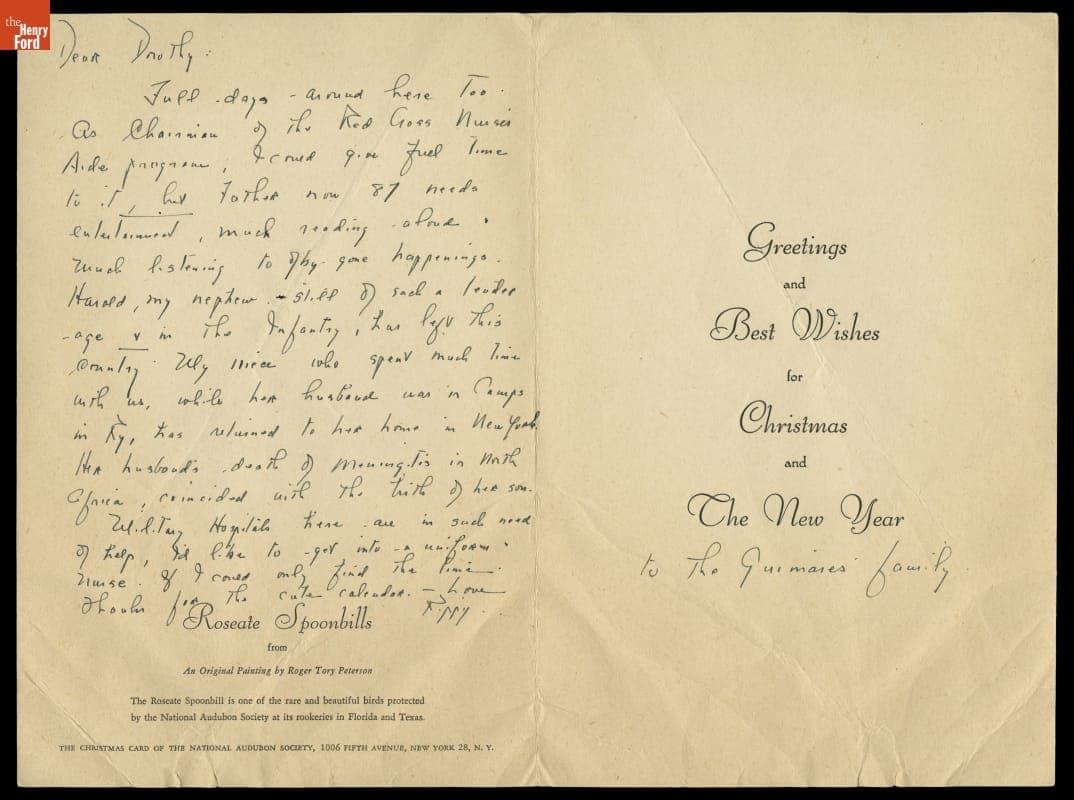 the
Henry
Ford
Dear Dorothy:
Full days around here too.
As Chairman of the Red Cross Nurses
Aide program, I could give full time
to it, but Father now 87 needs
entertainment, much reading aloud.
Much listening to by-gone happenings.
Harold, my nephew - still of such a tender
age & in the Infantry, has left this
country. My niece who spent much time
with us, while her husband was in Camps
in Ky, has returned to her home in New York.
Her husband's death of Meningitis in North
Africa, coincided with the birth of her son.
Military Hospitals here are in such need
of help, I'd like to get into a uniform
nurse. If I could only find the time.
Thanks for the cute calendar. - Love
Roseate Spoonbills
from
An Original Painting by Roger Tory Peterson
The Roseate Spoonbill is one of the rare and beautiful birds protected
by the National Audubon Society at its rookeries in Florida and Texas.
THE CHRISTMAS CARD OF THE NATIONAL AUDUBON SOCIETY, 1006 FIFTH AVENUE, NEW YORK 28, N. Y.
Greetings
and
Best Wishes
for
Christmas
and
The New Year
to the family